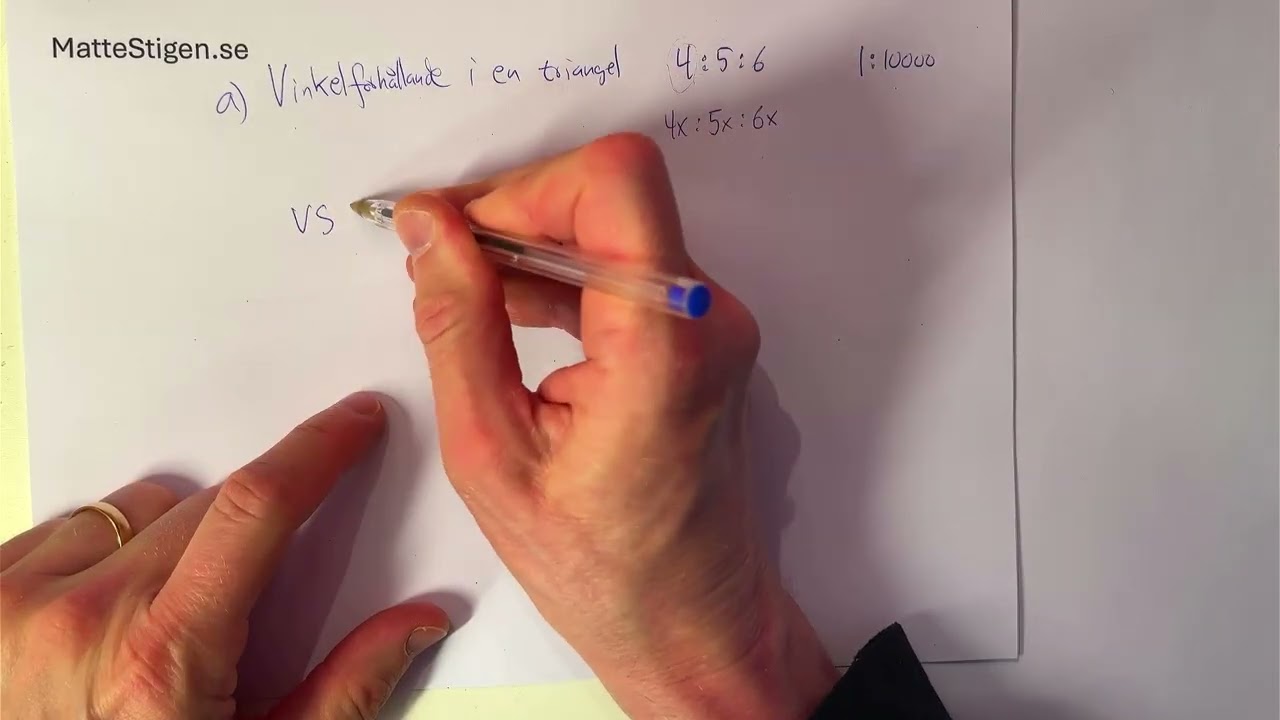 MatteStigen.se
a) Vinkelförhållande i en triangel 4:5:6 1:10000
4x:5x:6x
VS